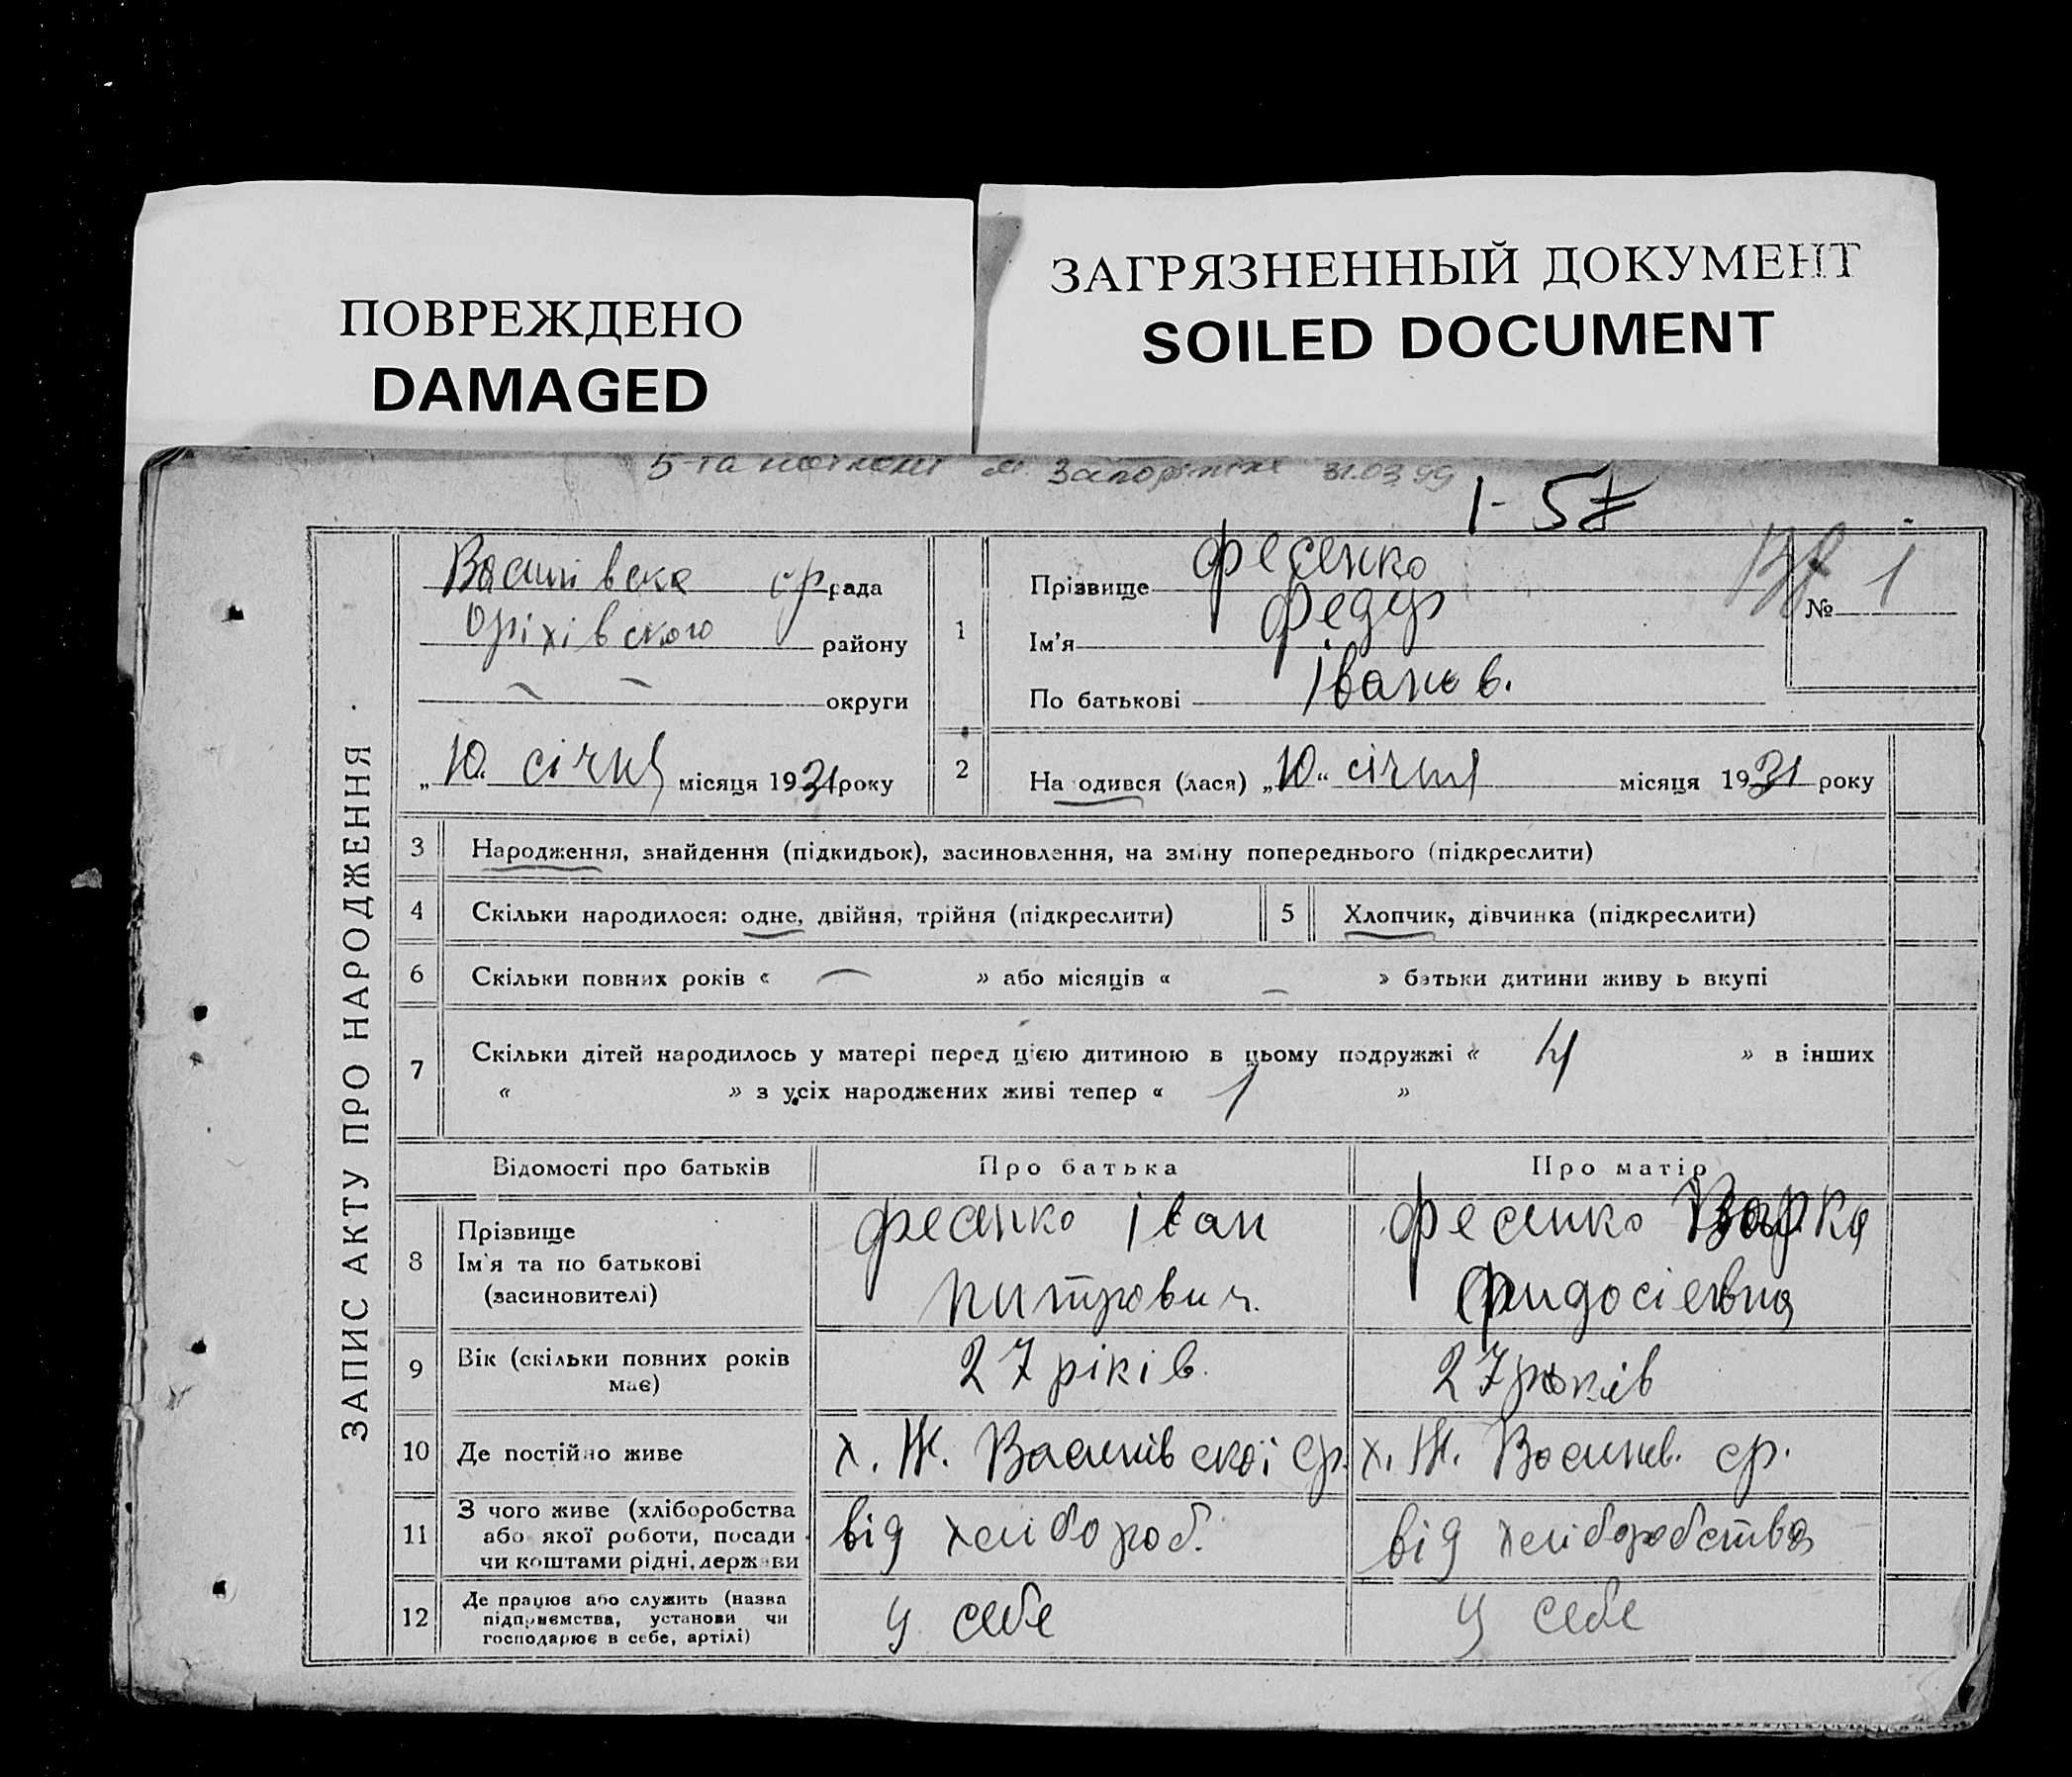 ПОВРЕЖДЕНО
DAMAGED
ЗАГРЯЗНЕННЫЙ ДОКУМЕНТ
SOILED DOCUMENT
5-та м. Запоріжжя 31.03.99
1-57
ЗАПИС АКТУ ПРО НАРОДЖЕННЯ
Василівска ср рада
Оріхівского району
— — округи
„10. січня місяця 1931 року
1
Прізвище Фесенко
Ім'я Федір
По батькові Іванов.
№ 1
2 На одився (лася) „10" січня місяця 1931 року
3 Народження, знайдення (підкидьок), засиновлення, на зміну попереднього (підкреслити)
4 Скільки народилося: одне, двійня, трійня (підкреслити)
5 Хлопчик, дівчинка (підкреслити)
6 Скільки повних років « — » або місяців « — » батьки дитини живу ь вкупі
7 Скільки дітей народилось у матері перед цією дитиною в цьому подружжі « 4 » в інших
« » з усіх народжених живі тепер « 1 »
Відомості про батьків Про батька Про матір
8 Прізвище
Ім'я та по батькові
(засиновителі)
Фесенко Іван
Питрович.
Фесенко Варка
Фидосіевна
9 Вік (скільки повних років
має)
27 ріків.
27 років
10 Де постійно живе
х. Ж. Василівскої ср.
х. Ж. Василів. ср.
11 З чого живе (хліборобства
або якої роботи, посади
чи коштами рідні, держави
від хлібороб.
від хліборобства
12 Де працює або служить (назва
підприємства, установи чи
господарює в себе, артілі)
у себе
у себе